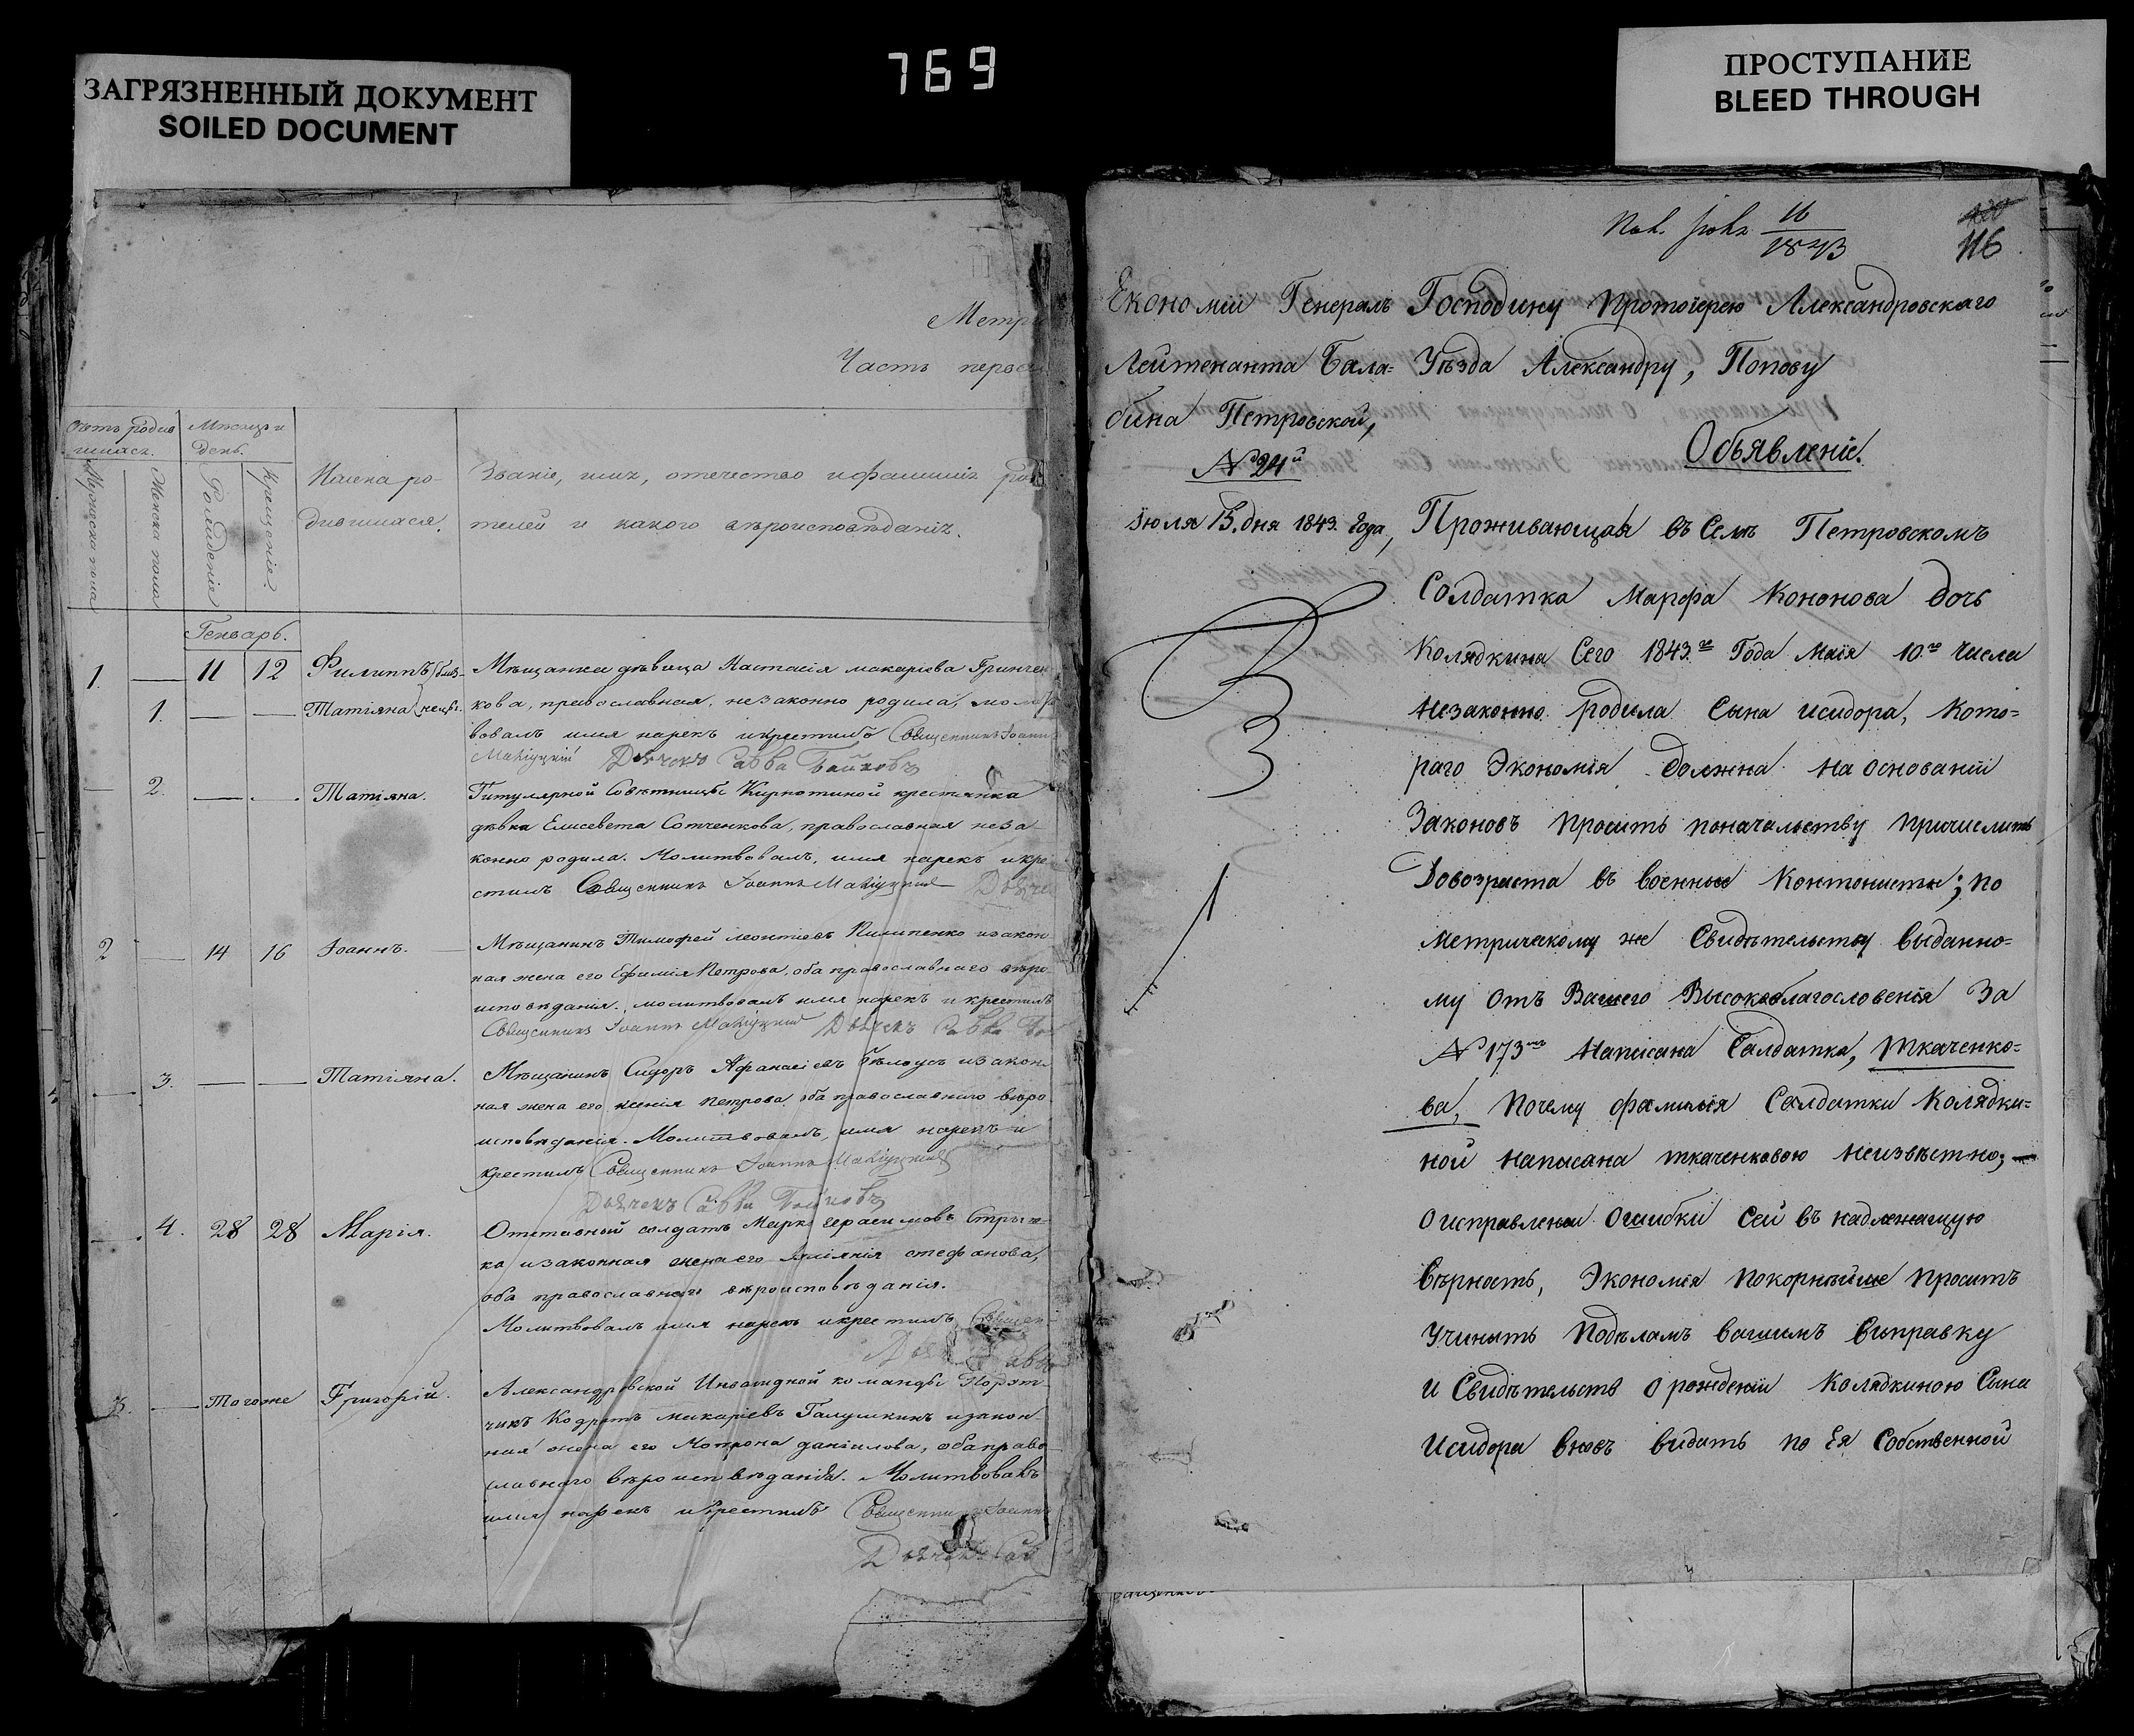 769
ЗАГРЯЗНЕННЫЙ ДОКУМЕНТ
SOILED DOCUMENT
ПРОСТУПАНИЕ
BLEED THROUGH
Метри
Часть перва
Счетъ родив
шихся.
Мѣсяцъ и
день.
Мужеска пола
Женска пола
Рожденіе
Крещеніе.
Имена ро-
дившихся.
Званіе, имя, отечество и фамилія род
телей и какого вѣроисповѣданія.
Генварь.
1. 11 12 Филиппъ близ- Мѣщанка дѣвица Настасія макаріева Гринчен
1. Татіяна нецы. кова, православная, незаконно родила, молит
вовалъ имя нарекъ и крестилъ Священникъ Іоаннъ
Дьячокъ Савва Байковъ
2. Татіяна. Титулярной Совѣтницы крестянка
дѣвка Елисевета Сотченкова, православная неза
конно родила. Молитвовалъ, имя нарекъ и кре
стилъ Священникъ Іоаннъ Дьяче
2 14 16 Іоаннъ. Мѣщанинъ Тимофей леонтіевъ Пилипенко и закон
ная жена его Ефимія Петрова, оба православнаго вѣро
исповѣданія. молитвовалъ имя нарекъ и крестилъ
Священникъ Іоаннъ Дьячекъ Савва Ба
3. Татіяна. Мѣщанинъ Сидоръ Афанасіевъ Бѣлоусъ и закон
ная жена его ксенія Петрова оба православнаго вѣро
исповѣданія. Молитвовалъ, имя нарекъ и
крестилъ Священникъ Іоаннъ
Дьячекъ Савва Байковъ
4. 28 28 Марія. Отставный солдатъ Марко герасимовъ Стриж
ка и законная жена его стефанова,
оба православнаго вѣроисповѣданія.
Молитвовалъ имя нарекъ и крестилъ Священ
Савва
3. Тогоже Григорій. Александровской Инвалидной команды
Кодратъ макаріевъ Галушкинъ и закон
ная жена его Мотрона даніилова, оба право
славнаго вѣроисповѣданія. Молитвовалъ
имя нарекъ и крестилъ Священникъ Іоаннъ
Дьячекъ Сав
16
1843
116
Економіи Генералъ
Лейтенанта Бала=
бина Петровской,
№ 24й
Iюля 15. дня 1843. Года,
Господину Протоіерею Александровскаго
Уѣзда Александру, Попову
Объявленіе.
Проживающая въ Селѣ Петровскомъ
Солдатка Марфа Кононова дочь
Колядкина Сего 1843го Года Маія 10го числа
незаконно родила Сына исидора, Кото=
раго Экономія должна на основаніи
Законовъ просить поначальству причислить
Довозраста въ военные Контонисты; по
метрическому же Свидѣтельству выданно=
му отъ Вашего Высокоблагословенія За
№ 173мъ написана Салдатка, Ткаченко=
ва, почему фамилія Салдатки Колядки=
ной написана ткаченковою неизвѣстно; —
о исправленіи ошибки сей въ надлежащую
вѣрность, Экономія покорнѣйше проситъ
учинить подѣламъ вашимъ выправку
и Свидѣтельств о рожденіи Колядкиною Сына
Исидора вновь видать по Ея Собственной